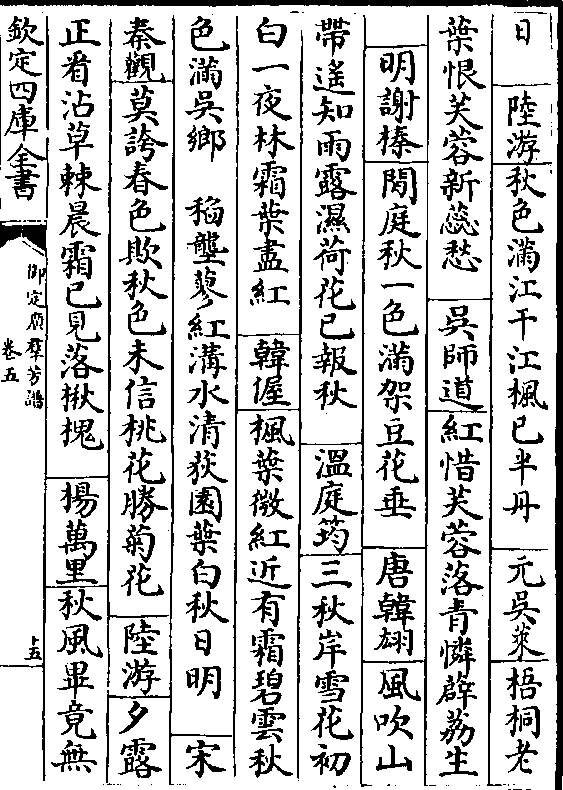 日　陸游秋色滿江干江楓已半丹　元吳萊梧桐老
葉恨芙蓉新蕊愁　吳師道紅惜芙蓉落青憐薜荔生
明謝榛閒庭秋一色滿架豆花垂　唐韓翃風吹山
帶遥知雨露濕荷花已報秋　溫庭筠三秋岸雪花初
白一夜林霜葉盡紅　韓偓楓葉微紅近有霜碧雲秋
色滿吳鄉　稻壟蓼紅溝水清荻園葉白秋日明　宋
秦觀莫誇春色欺秋色未信桃花勝菊花　陸游夕露
正看沾草棘晨霜已見落楸槐　楊萬里秋風畢竟無
欽定四庫全書
御定廣羣芳譜
卷五
十五